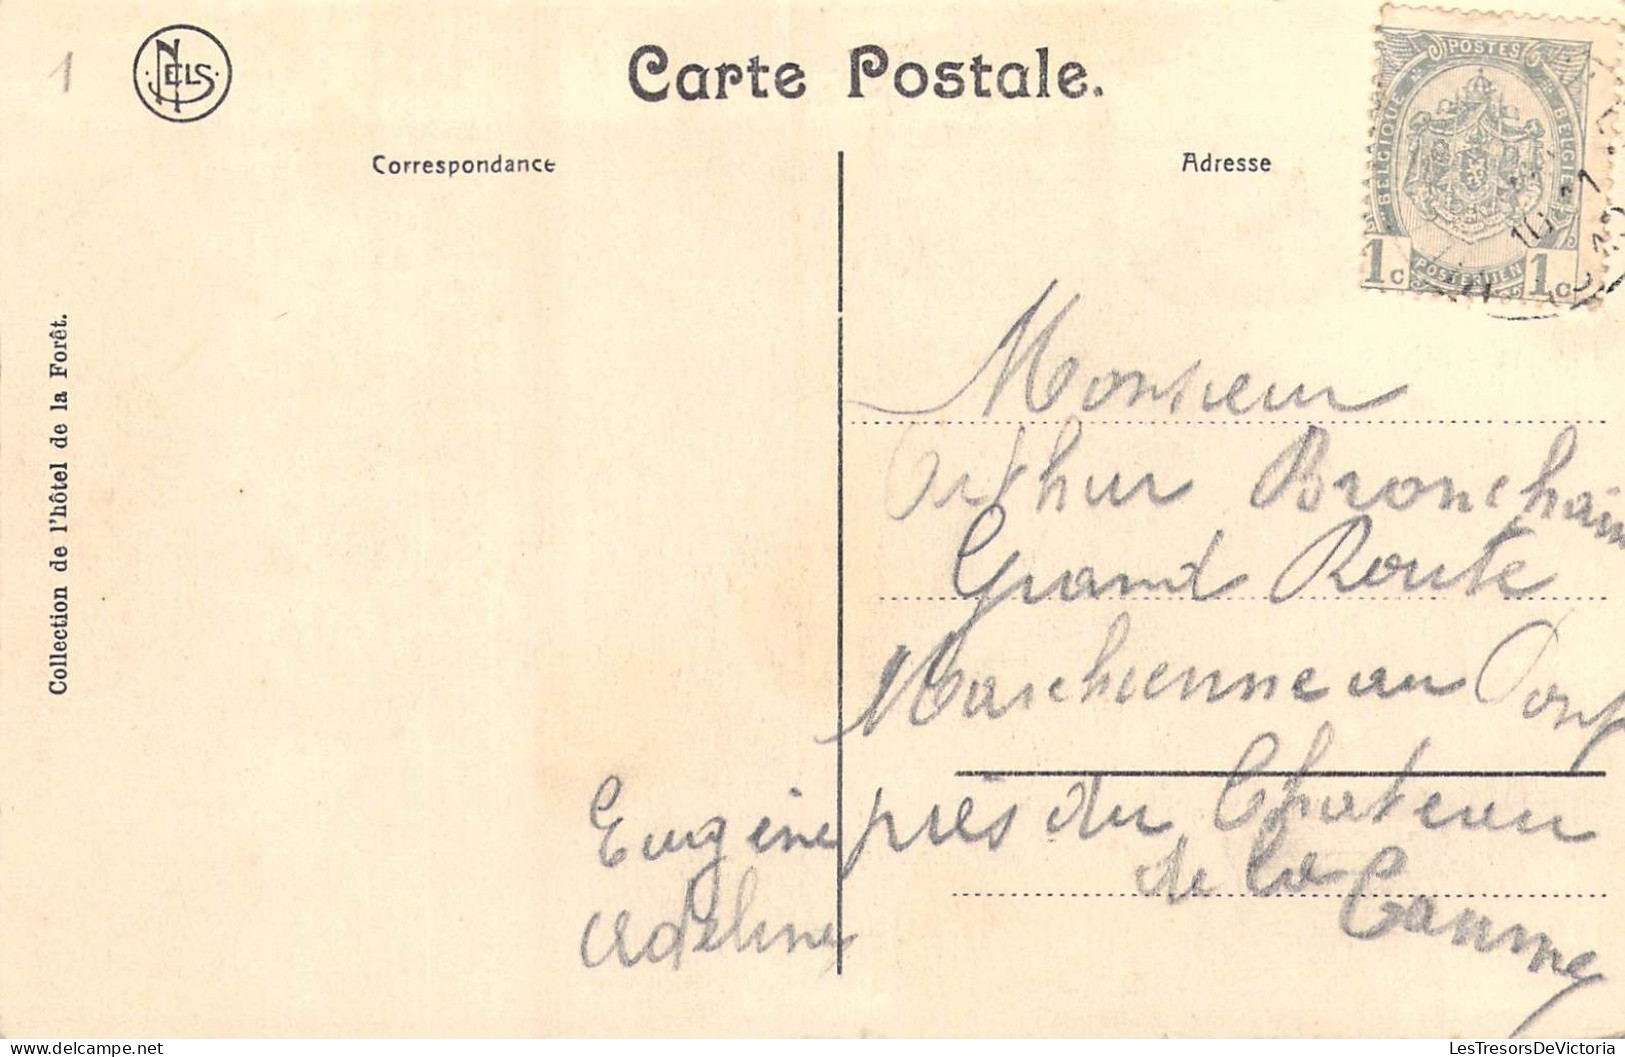 1
NELS
Carte Postale.
Correspondance
Adresse
POSTES
BELGIQUE
BELGIE
POSTERIJEN
1c 1c
Collection de l'hôtel de la Forêt.
Monsieur
Arthur Bronchain
Grand Route
Marchienne au Pont
près du Chateau
de la
Eugène
Adeline
LesTresorsDeVictoria